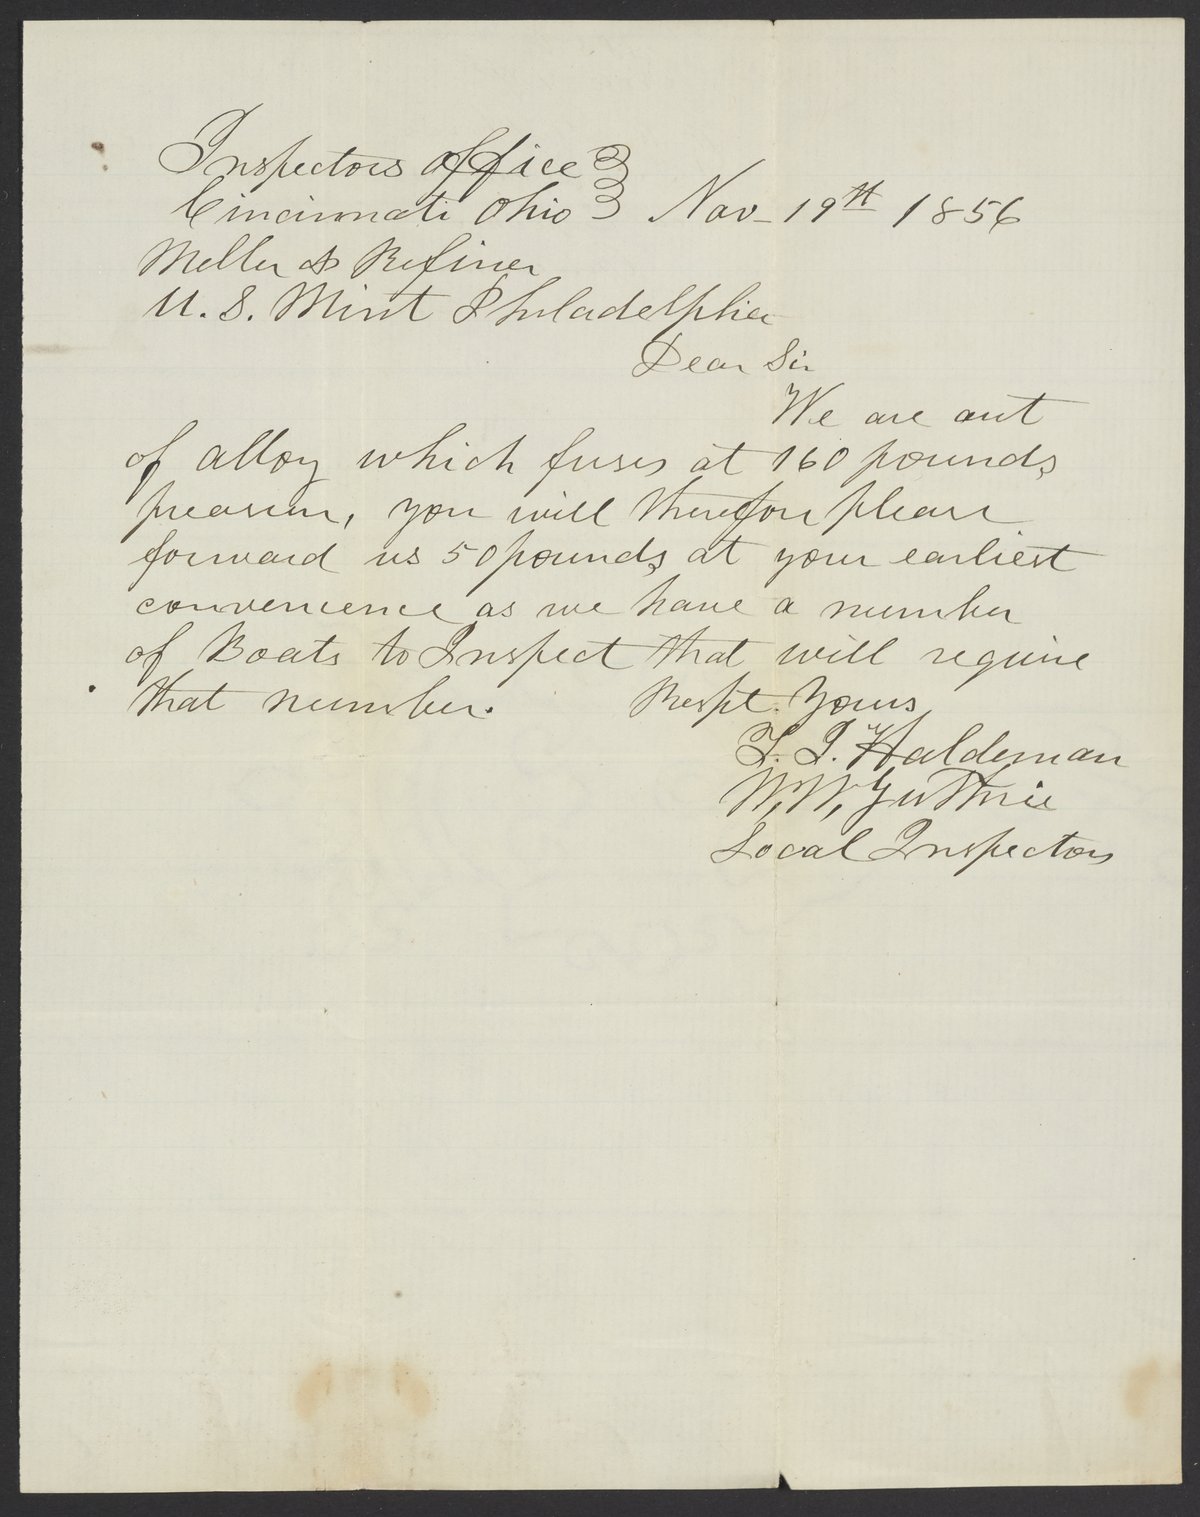 Inspectors office
Cincinnati Ohio Nov- 19th 1856
Melter & Refiner
U. S. Mint Philadelphia
Dear Sir
We are out
of alloy which fuses at 160 pounds
preasure, you will therefore please
forward us 50 pounds at your earliest
convenience as we have a number
of Boats to Inspect that will require
that number. Respt. Yours
Haldeman
W. W. Guthrie
Local Inspectors